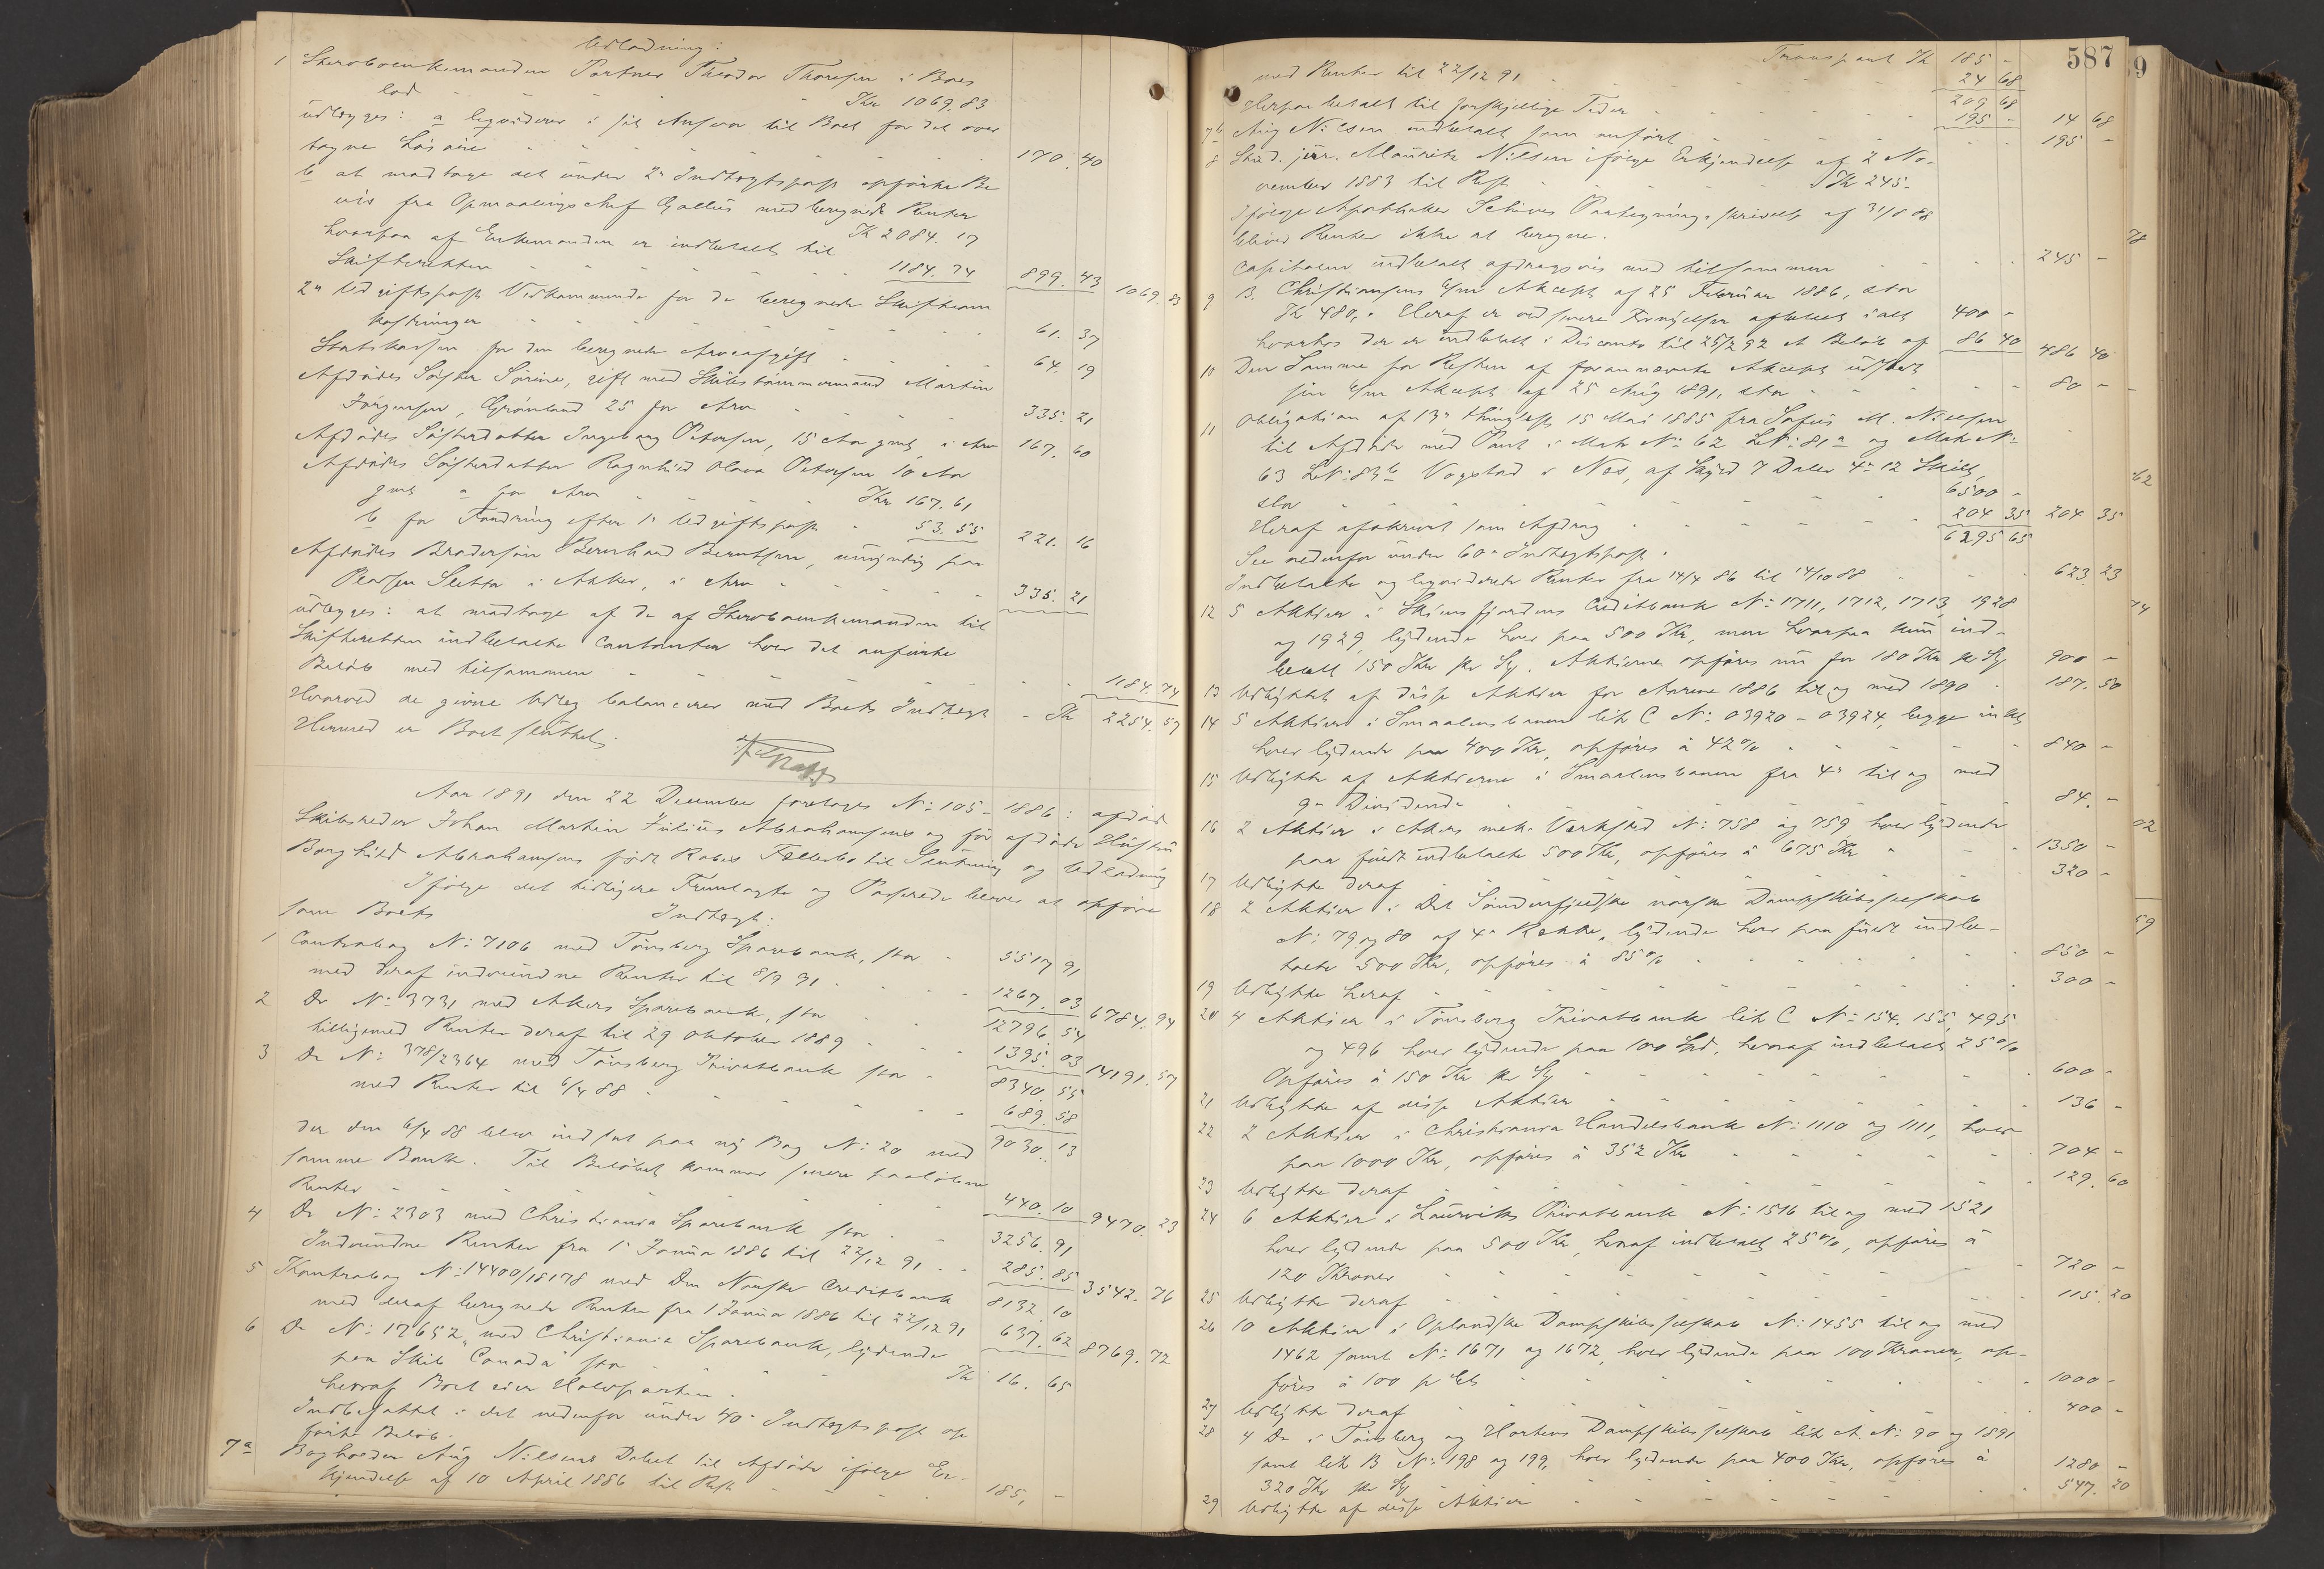 Udlodning:
1 Stervboenkemanden Portner Theodor Thoresen i Boes
lod - - - - Kr 1069.83
udlægges: a liqviderer i sit Ansvar til Boet for det over
tagne Løsøre - - - - 170.40
b at modtage det under 2n Indtægtspost opførte Be
vis fra Opmaalingschef Gallus med beregnede Renter
Kr 2084.17
hvorpaa af Enkemanden er indbetalt til
Skifteretten - - - 1184.74 899.43 1069.83
2n Udgiftspost Vedkommende for de beregnede Skifteom
kostninger - - - 61.37
Statskassen for den beregnede Arveafgift - - 64.19
Afdødes Søster Sørine, gift med Skibstømmermand Martin
Jørgensen, Grønland 25 for Arv - - - 335.21
Afdødes Søsterdatter Ingeborg Petersen, 15 Aar gml, i Arv 167.60
Afdødes Søsterdatter Ragnhild Olava Petersen 10 Aar
gml a for Arv - - - Kr 167.61
b for Fordring efter 1n Udgiftspost - 53.55 221.16
Afdødes Brodersøn Bernhard Berntsen, umyndig paa
Pladsen Sletta i Aker, i Arv - - - 335.21
udlægges: at modtage af de af Stervboenkemanden til
Skifteretten indbetalte Contanter hver det anførte
Beløb med tilsammen - - - 1184.74
Hvorved de givne Udlæg balancerer med Boets Indtægt - Kr 2254.57
Hermed er Boet sluttet.
Aar 1891 den 22 December foretoges No 105 - 1886: afdøde
Skibsreder Johan Martin Julius Abrahamsens og før afdøde Hustru
Borghild Abrahamsens født Fællesbo til Slutning og Udlodning
Ifølge det tidligere Fremlagte og Passerede bliver at opføre
som Boets Indtægt:
1 Contrabog No 7106 med Tønsberg Sparebank, stor - 5517 91
med deraf indvundne Renter til 8/9 91 - - - 1267.03 6784.94
2 Do No 3731 med Akers Sparebank, stor - - 12796.54
tilligemed Renter deraf til 29 Oktober 1889 - - 1395.03 14191.57
3 Do No 378/2364 med Tønsberg Privatbank stor - 8340.55
med Renter til 6/4 88 - - - 689.58
9030.13
der den 6/4 88 blev indsat paa ny Bog No 20 med
samme Bank. Til Beløbet kommer senere paaløbne
Renter - - - 440.10 9470.23
4 Do No 2303 med Christiania Sparebank stor - - 3256.91
Indvundne Renter fra 1 Januar 1886 til 22/12 91 - - 285.85 3542.76
5 Kontrabog No 14400/18178 med Den Norske Creditbank 8132.10
med deraf beregnede Renter fra 1 Januar 1886 til 22/12 91 637.62 8769.72
6 Do No 17652 med Christiania Sparebank, lydende
paa Skib "Canada" stor - - - Kr 16.65
hvoraf Boet eier Halvparten.
Indbefattet i det nedenfor under 40n Indtægtspost op
førte Beløb.
7a Bogholder Aug Nilsens Debet til Afdøde ifølge Er-
kjendelse af 10 April 1886 til Rest - - - 185, -
587
Transport Kr 185 -
med Renter til 22/12 91 - - - 24 68
209 68
Herpaa betalt til forskjellige Tider - - - 195 - 14 68
7b Aug Nilsen indbetalt som anført - - - 195 -
8 Stud. jur. Mauritz Nilsen ifølge Erkjendelse af 2 No-
vember 1883 til Rest - - - Kr 245 -
Ifølge Apotheker Schives Paategningsskrivelse af 31/8 88
bliver Renter ikke at beregne.
Capitalen indbetalt afdragsvis med tilsammen - - - 245 -
9 B. Christiansens Akcept af 25 Februar 1886, stor
Kr 480, - Heraf er ved senere Fornyelser afbetalt ialt 400 -
hvorhos der er indbetalt i Disconto til 25/2 92 et Beløb af 86 40 486 40
10 Den Samme for Resten af forannævnte Akcept udstedt
sin Akcept af 25 Aug 1891, stor - - - 80 -
11 Obligation af 13n thinglæst 15 Mai 1885 fra Sofus M. Nielsen
til Afdøde med Pant i Matr No 62 LNo 81a og Matr No
63 LNo 83b Vogstad i Næs, af Skyld 7 Daler 4 12 Skill,
stor - - - 6500 -
Heraf afskrevet som Afdrag - - - 204 35 204 35
6295 65
See nedenfor under 60n Indtægtspost.
Indbetalte og liqviderede Renter fra 14/4 86 til 14/10 88 - - - 623.23
12 5 Aktier i Skiensfjordens Creditbank No 1711, 1712, 1713, 1928
og 1929, lydende hver paa 500 Kr, men hvorpaa kun ind-
betalt 150 Kr pr Stk. Aktierne opføres nu for 180 Kr pr Stk 900 -
13 Udbyttet af disse Aktier for Aarene 1886 til og med 1890 - 187.50
14 5 Aktier i Smaalensbanen litr C No 03920 - 03924, begge inkl
hver lydende paa 400 Kr, opføres à 42% - - - 840 -
15 Udbytte af Aktierne i Smaalensbanen fra 4n til og med
9n Dividende - - - 84. -
16 2 Aktier i Akers mek. Værksted No 758 og 759, hver lydende
paa fuldt indbetalte 500 Kr, opføres à 675 Kr - - 1350 -
17 Udbytte deraf - - - 320 -
18 2 Aktier i Det Søndenfjeldske norske Dampskibsselskab
No 79 og 80 af 4n Række, lydende hver paa fuldt indbe-
talte 500 Kr, opføres à 85% - - - 850 -
19 Udbytte heraf - - - 300 -
20 4 Aktier i Tønsberg Privatbank litr C No 154, 155, 495
og 496 hver lydende paa 100 Spd, hvoraf indbetalt 25%
Opføres à 150 Kr pr Stk - - - 600 -
21 Udbytte af disse Aktier - - - 136 -
22 2 Aktier i Christiania Handelsbank No 1110 og 1111, hver
paa 1000 Kr, opføres à 352 Kr - - - 704 -
23 Udbytte deraf - - - 129.60
24 6 Aktier i Laurviks Privatbank No 1516 til og med 1521
hver lydende paa 500 Kr, hvoraf indbetalt 25%, opføres à
120 Kroner - - - 720 -
25 Udbytte deraf - - - 115.20
26 10 Aktier i Oplandske Dampskibsselskab No 1455 til og med
1462 samt No 1671 og 1672, hver lydende paa 100 Kroner, op-
føres à 100 p Ct - - - 1000 -
27 Udbytte deraf - - - 400 -
28 4 Do i Tønsberg og Hortens Dampskibsselskab litr A. No 90 og 1891
samt litr B No 198 og 199, hver lydende paa 400 Kr, opføres à
320 Kr pr Stk - - - 1280 -
29 Udbytte af disse Aktier - - - 547.20